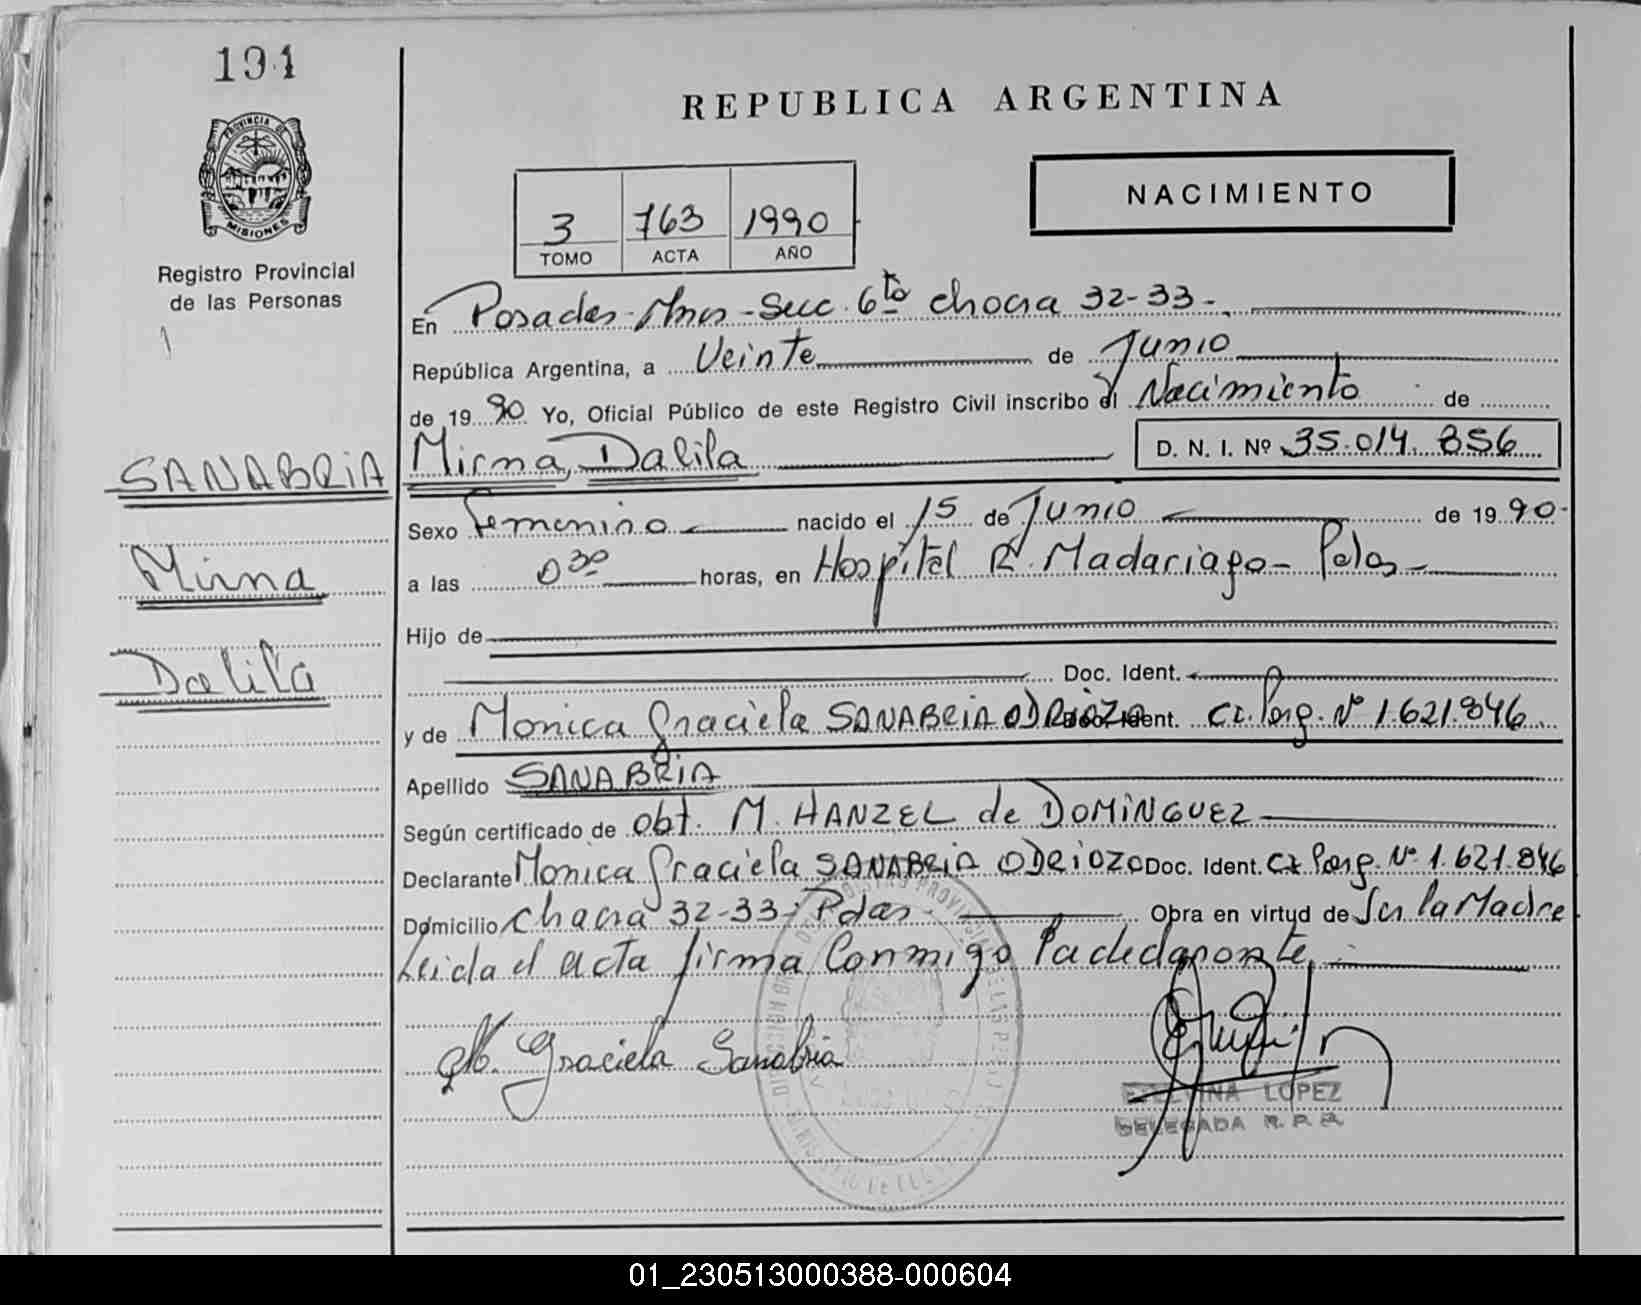 191
REPUBLICA ARGENTINA
PROVINCIA DE
MISIONES
NACIMIENTO
3 763 1990
TOMO ACTA AÑO
Registro Provincial
de las Personas
En Posadas-Mnes-Secc. 6ta chacra 32-33-
República Argentina, a Veinte de Junio
de 1990 Yo, Oficial Público de este Registro Civil inscribo el Nacimiento de
SANABRIA Mirna Dalila D. N. I. Nº 35.014.856
Sexo Femenino nacido el 15 de Junio de 1990-
Mirna
a las 0 30 horas, en Hospital R. Madariaga- Pdas-
Hijo de
Dalila
Doc. Ident.
y de Monica Graciela SANABRIA ODRIOZO Doc. Ident. CI. Parg. Nº 1.621.846
Apellido SANABRIA
Según certificado de obt. M. HANZEL de DOMINGUEZ
Declarante Monica Graciela SANABRIA ODRIOZO Doc. Ident. CI Parg. Nº 1.621.846
Domicilio chacra 32-33- Pdas- Obra en virtud de Ser la Madre
Leida el acta firma Conmigo la declarante.
M. Graciela Sanabria
LOPEZ
DELEGADA R. P. P.
01_230513000388-000604